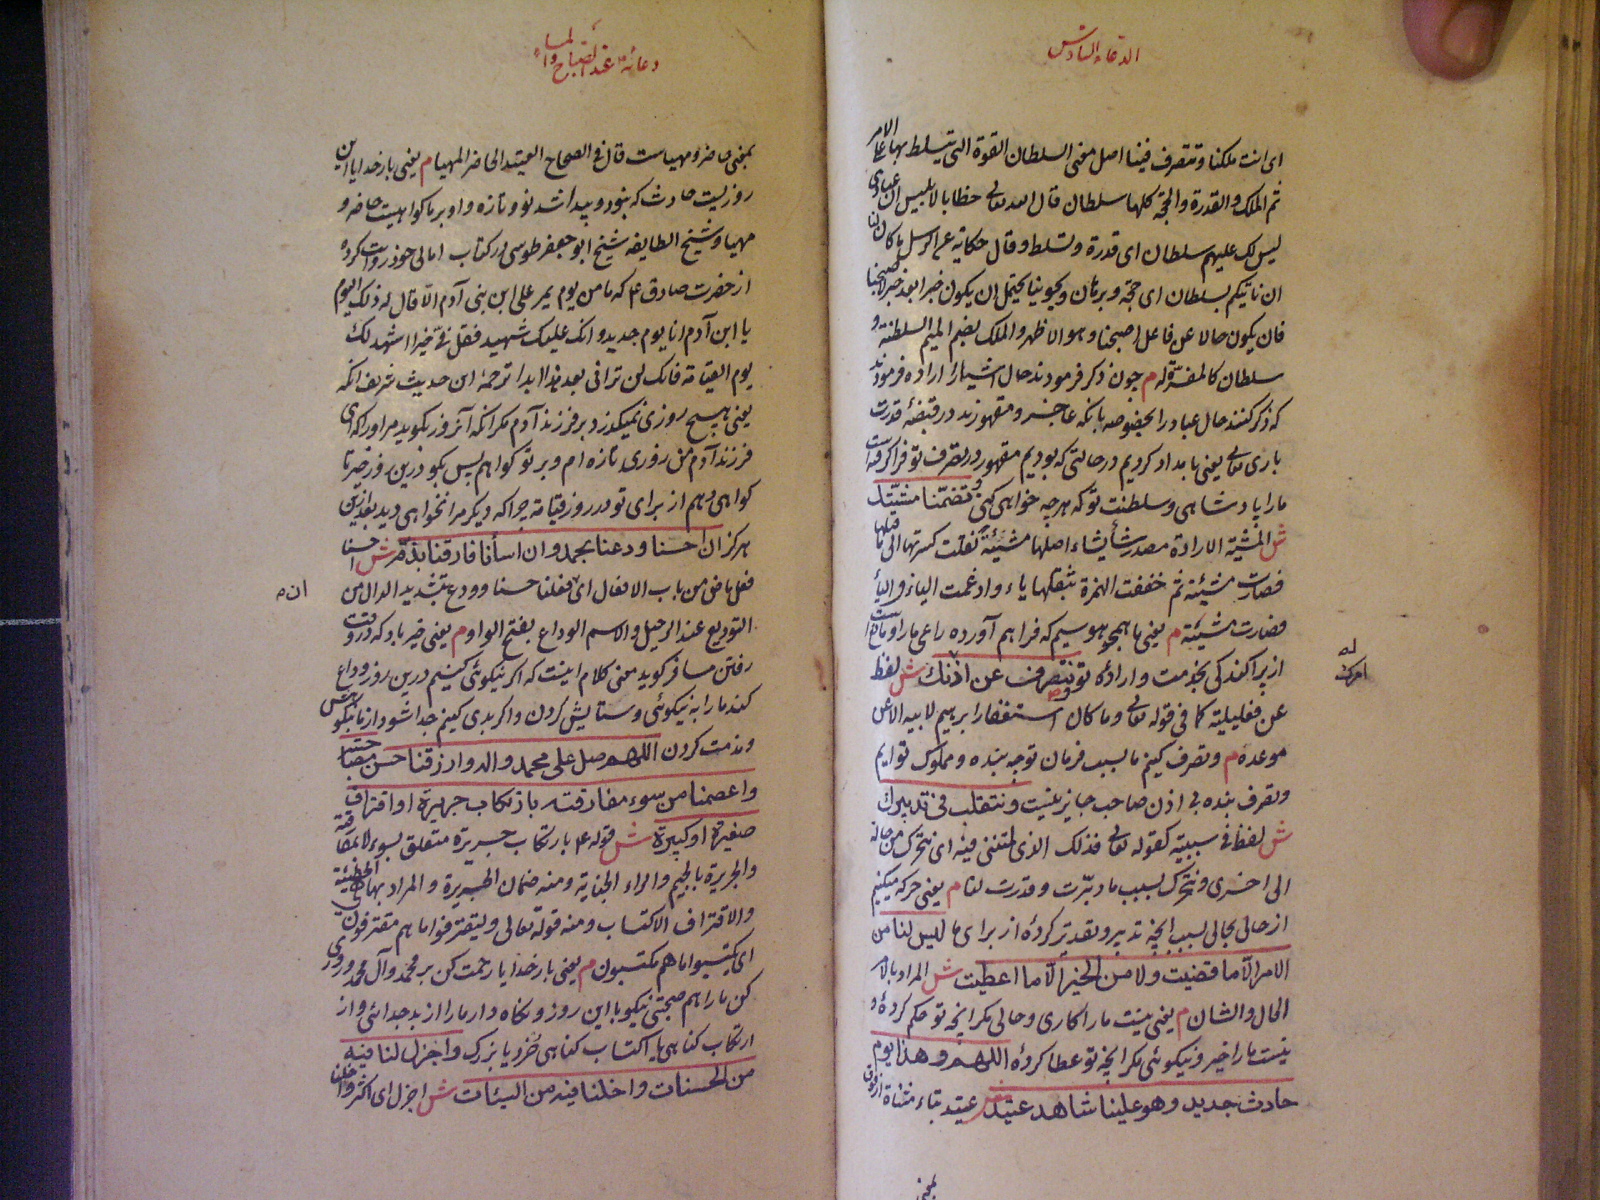 الدعاء السادس
ای انت ملکنا و تتصرف فینا اصل معنی السلطان القوة التی یتسلط بها علی الامر
ثم الملک و القدرة و الحجة کلها سلطان قال الله تعالی خطابا لابلیس ان عبادی
لیس لک علیهم سلطان ای قدرة و تسلط و قال حکایة عن الرسل ما کان لنا
ان ناتیکم بسلطان ای حجة و برهان و یحتمل ان یکون خبرا بعد خبر لاصبحنا
فان یکون حالا عن فاعل اصبحنا و هو الاظهر و الملک بضم المیم السلطنة و
سلطان کالمفسر له م چون ذکر فرمودند حال اشیا را اراده فرمودند
که ذکر کنند حال عباد را بخصوصه بانکه عاجز و مقهورند در قبضهٔ قدرت
باری تعالی یعنی بامداد کردیم در حالتی که بودیم مقهور در تصرف تو فرا گرفته است
ما را پادشاهی و سلطنت تو که هر چه خواهی کنی و تضمّنا مشیّتک
ش المشیة الارادة مصدر شأ یشاء اصلها مشیئة نقلت کسرتها الی ما قبلها
فصارت مشیئة ثم خففت الهمزة بقلبها یاء و ادغمت الیاء فی الیأ
فصارت مشیّة م یعنی ما همچو هوسیم که فراهم آورده راعی ما را و ما
از پراکندگی بخدمت و ارادهٔ تو نتصرف عن اذنک ش لفظ
عن تعلیلیة کما فی قوله تعالی و ما کان استغفار ابرهیم لابیه الا عن
موعدة م و تصرف کنیم ما بسبب فرمان تو چه بنده و مملوک توایم
و تصرف بنده بی اذن صاحب جایز نیست و نتقلب فی تدبیرک
ش لفظ فی سببیة کقوله تعالی فذلک الذی لمتننی فیه ای نتحرک من حالة
الی اخری و نتحرک بسبب ما دبرت و قدرت لنا م یعنی حرکه میکنیم
از حالی بحالی بسبب انچه تدبیر و تقدیر کردهٔ از برای ما لیس لنا من
الامر الّا ما قضیت و لا من الخیر الّا ما اعطیت ش المراد بالامر
الحال و الشان م یعنی نیست ما را کاری و حالی مکر انچه تو حکم کردهٔ و
نیست ما را خیر و نیکوئی مکر انچه تو عطا کردهٔ اللهم و هذا یوم
حادث جدید و هو علینا شاهد عتید ش عتید بتاء مثناة از فوق
بمعنی
دعائه عند الصباح و المساء
بمعنی حاضر و مهیاست قال فی الصحاح العتید الحاضر المهیا م یعنی بار خدایا این
روزیست حادث که نبود و پیدا شد نو و تازه و او بر ما کواهیست حاضر و
مهیا و شیخ الطایفه شیخ ابو جعفر طوسی در کتاب امالی خود روایت کرده
از حضرت صادق ع که ما من یوم یمر علی ابن بنی آدم الّا قال له ذلک الیوم
یا ابن آدم انا یوم جدید و انک علیک شهید فقل فیّ خیرا اشهد لک
یوم القیامة فانک لن ترانی بعد هذا ابدا ترجمهٔ این حدیث شریف انکه
یعنی هیچ روزی نمیکذرد بر فرزند آدم مکر انکه آنروز بکوید مر او را که ای
فرزند آدم من روزی تازه ام و بر تو کواهم پس بکو درین روز خیر تا
کواهی دهم از برای تو در روز قیامة چرا که دیکر مرا نخواهی دید بعد ازین
هرکز ان احسنا ودعنا بحمد و ان اسأنا فارقنا بذمّ ش احسنا
فعل ماض من باب الافعال ای فعلنا حسنا و ودع بتشدید الدال من
التودیع عند الرحیل و الاسم الوداع بفتح الواو م یعنی خیر باد که در وقت
رفتن مسافر کوید معنی کلام اینست که اکر نیکوئی کنیم درین روز وداع
کند ما را به نیکوئی و ستایش کردن و اکر بدی کنیم جدا شود از ما بنکوهش
و مذمت کردن اللهم صل علی محمد و اله و ارزقنا حسن مصاحبته
و اعصمنا من سوء مفارقته بارتکاب جریرة او اقتراف
صغیرة او کبیرة ش قوله ع بارتکاب جریرة متعلق بسوء لا بمفارقته
و الجریرة بالجیم و الراء الجنایة و منه ضمان الجریرة و المراد بها هی الخطیئة
و الاقتراف الاکتساب و منه قوله تعالی و لیقترفوا ما هم مقترفون
ای یکتسبوا ما هم مکتسبون م یعنی بار خدایا رحمت کن بر محمد و آل محمد و روزی
کن ما را هم صحبتی نیکو با این روز و نکاه دار ما را از بد جدائی و از
ارتکاب کناهی یا اکتساب کناهی خُرد یا بزرک و اجزل لنا فیه
من الحسنات و اخلنا فیه من السیئات ش اجزل ای اکثر و اخلنا